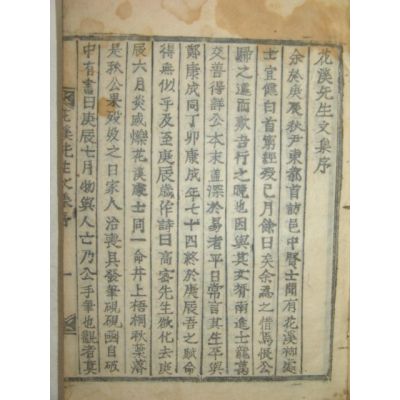 花溪先生文集序
余於庚 秋尹東都首訪邑中賢士聞有花溪柳處
士宜健白首窮經歿已月餘日矣余爲之惜焉恨公
歸之 而歎吾行之晩也因與其 南進士龍萬
交善得詳公本末盖深於易者平日常言其生年與
鄭康成同丁卯康成年七十四終於庚辰吾之賦命
得無似乎及至庚辰歲作詩曰高密先生欲化去庚
辰六月炎威爍花溪處士同一命井上梧桐秋葉落
是秋公果歿歿之日家人治喪具發筆硯硯匣自破
中有書曰庚辰七月物與人亡乃公手筆也觀者莫
花溪先生文集序 一